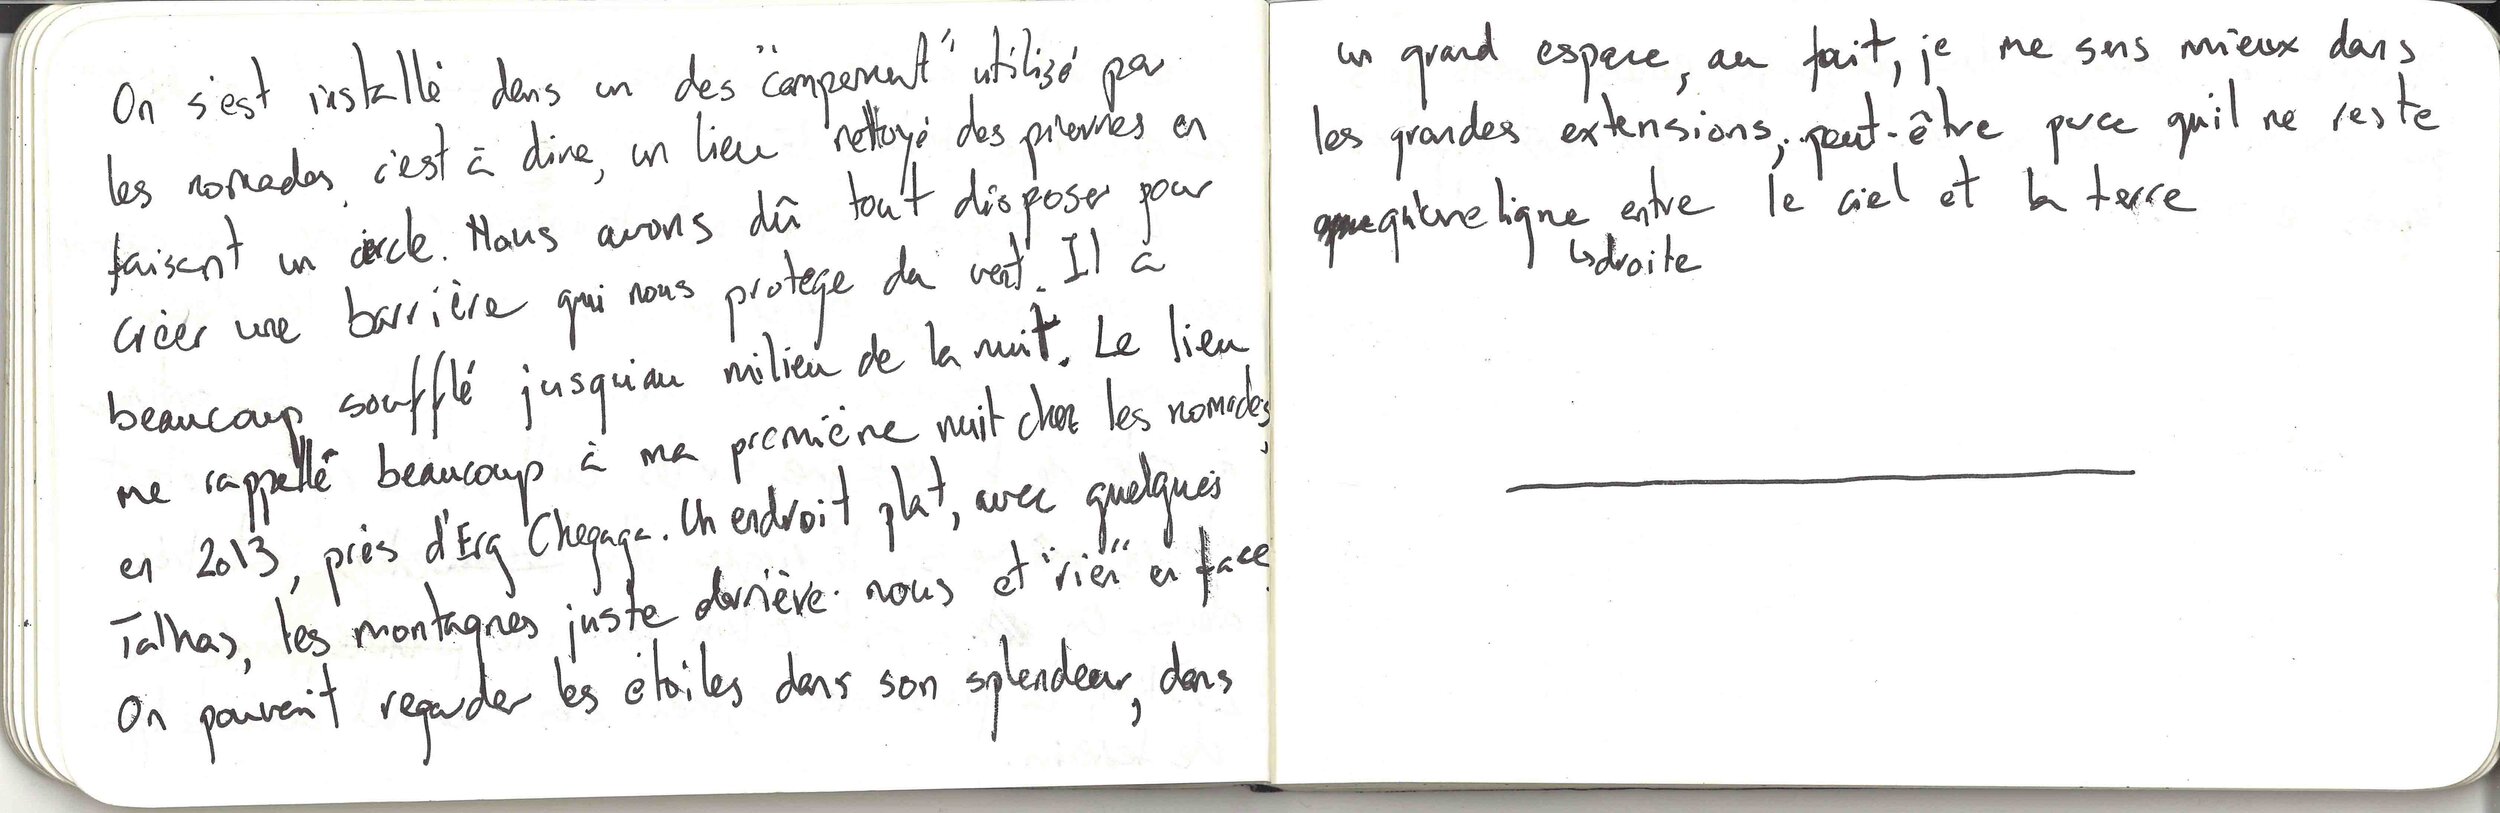 On s'est installé dans un des "campement" utilizé par
les nomades, c'est à dire, un lieu nettoyé des pierres en
faisant un cercle. Nous avons dû tout disposer pour
créer une barrière qui nous protege du vent. Il a
beaucoup soufflé jusqu'au milieu de la nuit. Le lieu
me rappellé beaucoup à ma première nuit chez les nomades,
en 2013, près d'Erg Chegaga. Un endroit plat, avec quelques
Talhas, les montagnes juste derrière nous et "rien" en face.
On pouvait regarder les étoiles dans son splendeur, dans
un grand espace, au fait, je me sens mieux dans
les grandes extensions, peut-être parce qu'il ne reste
qu'une ligne entre le ciel et la terre
↳droite